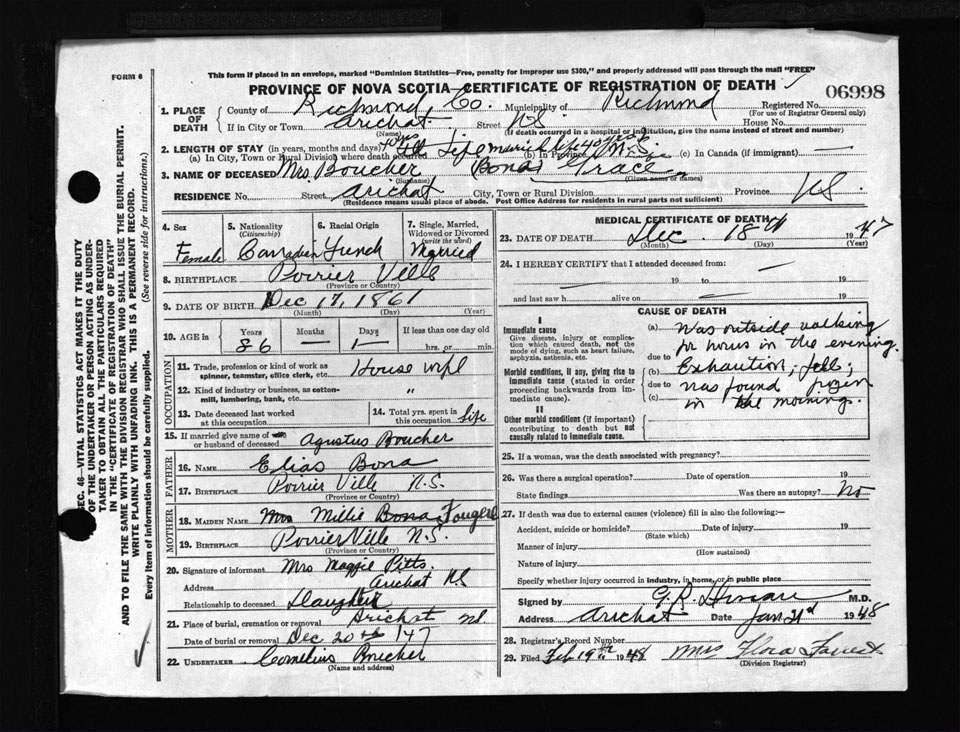 FORM 6
This form if placed in an envelope, marked "Dominion Statistics—Free, penalty for improper use $300," and properly addressed will pass through the mail "FREE"
PROVINCE OF NOVA SCOTIA—CERTIFICATE OF REGISTRATION OF DEATH
06998
1. PLACE OF DEATH
County of Richmond Co. Municipality of Richmond Registered No.
(For use of Registrar General only)
If in City or Town Arichat Street N.S. House No.
(Name) (If death occurred in a hospital or institution, give the name instead of street and number)
2. LENGTH OF STAY (in years, months and days)
(a) In City, Town or Rural Division where death occurred Life (b) In Province Life (c) In Canada (if immigrant) —
3. NAME OF DECEASED Mrs Boucher (Bona) Grace
(Surname) (Given name or names)
RESIDENCE No. Street Arichat City, Town or Rural Division Province N.S.
(Residence means usual place of abode. Post Office Address for residents in rural parts not sufficient)
4. Sex
Female
5. Nationality
(Citizenship)
Canadian
6. Racial Origin
French
7. Single, Married, Widowed or Divorced
(write the word)
Married
8. BIRTHPLACE Poirier Ville
(Province or Country)
9. DATE OF BIRTH Dec 17, 1861
(Month) (Day) (Year)
10. AGE in
Years Months Days If less than one day old
86 — 1 hrs. or min.
OCCUPATION
11. Trade, profession or kind of work as spinner, teamster, office clerk, etc. House wife
12. Kind of industry or business, as cotton-mill, lumbering, bank, etc. "
13. Date deceased last worked at this occupation
14. Total yrs. spent in this occupation Life
15. If married give name of wife or husband of deceased Agustus Boucher
FATHER
16. NAME Elias Bona
17. BIRTHPLACE Poirier Ville N.S.
(Province or Country)
MOTHER
18. MAIDEN NAME Mrs Millie Bona Fougere
19. BIRTHPLACE Poirier Ville N.S.
(Province or Country)
20. Signature of informant Mrs Maggie Pitts.
Address Arichat N.S
Relationship to deceased Daughter
21. Place of burial, cremation or removal Arichat N.S.
Date of burial or removal Dec 20th /47
22. UNDERTAKER Cornelius Boucher
(Name and address)
MEDICAL CERTIFICATE OF DEATH
23. DATE OF DEATH Dec. 18th 1947
(Month) (Day) (Year)
24. I HEREBY CERTIFY that I attended deceased from: —
19 to 19
and last saw h alive on — 19
CAUSE OF DEATH
I
Immediate cause
Give disease, injury or complication which caused death, not the mode of dying, such as heart failure, asphyxia, asthenia, etc.
Morbid conditions, if any, giving rise to immediate cause (stated in order proceeding backwards from immediate cause).
II
Other morbid conditions (if important) contributing to death but not causally related to immediate cause.
(a) Was outside walking
for hours in the evening.
due to
(b) Exhaustion, fell;
due to was found frozen
(c) in the morning.
25. If a woman, was the death associated with pregnancy?
26. Was there a surgical operation? Date of operation 19
State findings Was there an autopsy? No
27. If death was due to external causes (violence) fill in also the following:—
Accident, suicide or homicide? Date of injury 19
(State which)
Manner of injury
(How sustained)
Nature of injury
Specify whether injury occurred in industry, in home, or in public place
Signed by G.R. M.D.
Address Arichat Date Jan 21st 1948
28. Registrar's Record Number
29. Filed Feb 19th 1948 Mrs Flora
(Division Registrar)
SEC. 46—VITAL STATISTICS ACT MAKES IT THE DUTY
OF THE UNDERTAKER OR PERSON ACTING AS UNDER-
TAKER TO OBTAIN ALL THE PARTICULARS REQUIRED
IN THE "CERTIFICATE OF REGISTRATION OF DEATH"
AND TO FILE THE SAME WITH THE DIVISION REGISTRAR WHO SHALL ISSUE THE BURIAL PERMIT.
WRITE PLAINLY WITH UNFADING INK. THIS IS A PERMANENT RECORD.
Every item of information should be carefully supplied. (See reverse side for instructions.)